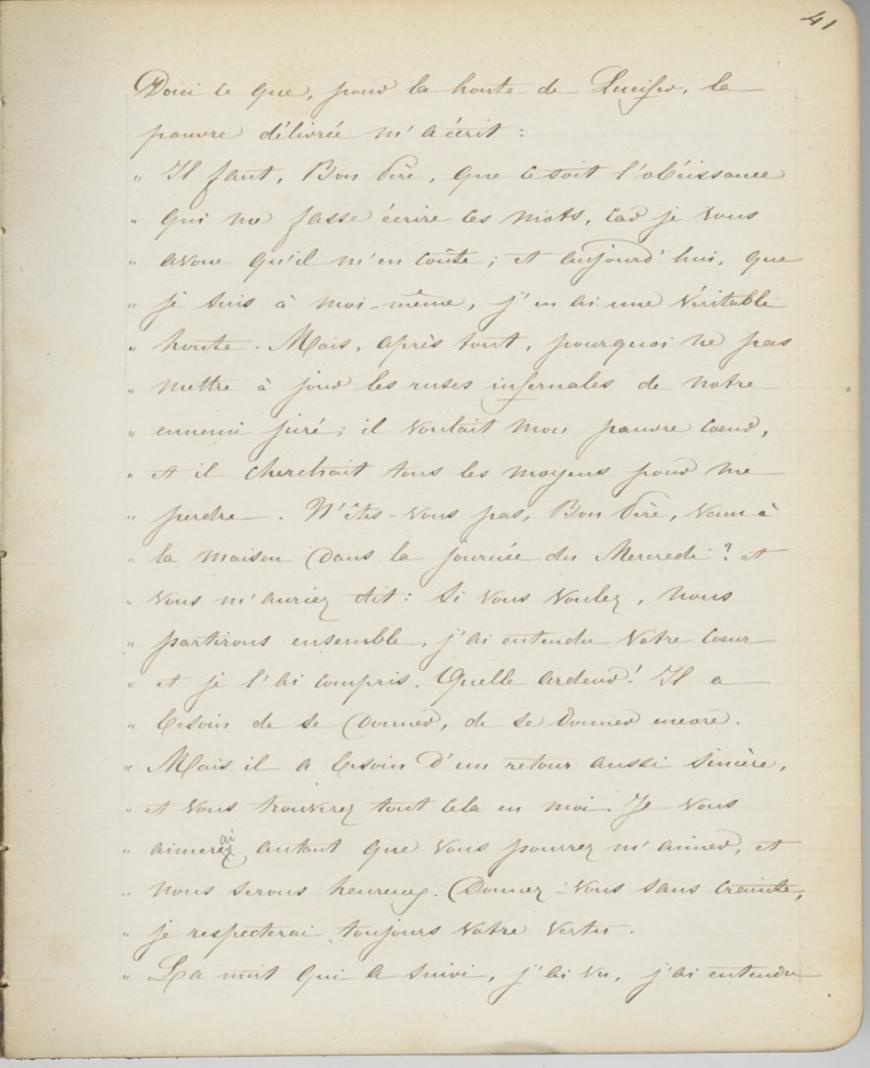 41
Voici ce que, pour la honte de Lucifer, la
pauvre délivrée m'a écrit :
" Il faut, Bon Père, que ce soit l'obéissance
" qui me fasse écrire ces mots, car je vous
" avoue qu'il m'en coûte ; et aujourd'hui, que
" je suis à moi-même, j'en ai une véritable
" honte. Mais, après tout, pourquoi ne pas
" mettre à jour les ruses infernales de notre
" ennemi juré ; il voulait mon pauvre cœur,
" et il cherchait tous les moyens pour me
" perdre. N'êtes-vous pas, Bon Père, venu à
" la maison dans la journée du Mercredi ? et
" vous m'auriez dit : Si vous voulez, nous
" partirons ensemble, j'ai entendu votre cœur
" et je l'ai compris. Quelle ardeur ! Il a
" besoin de se donner, de se donner encore.
" Mais il a besoin d'un retour aussi sincère,
" et vous trouverez tout cela en moi. Je vous
" aimerai autant que vous pourrez m'aimer, et
" nous serons heureux. Donnez-vous sans crainte,
" je respecterai toujours votre vertu.
" La nuit qui a suivi, j'ai vu, j'ai entendu